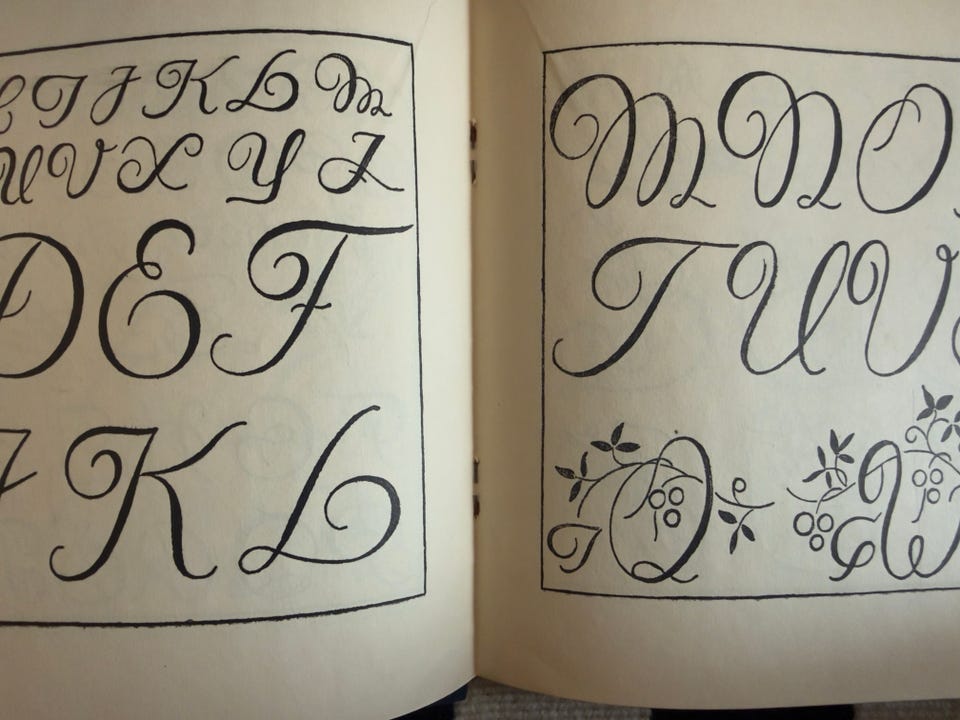 I J K L M
U V X Y Z
D E F
K L
M N O
T U V
T Q